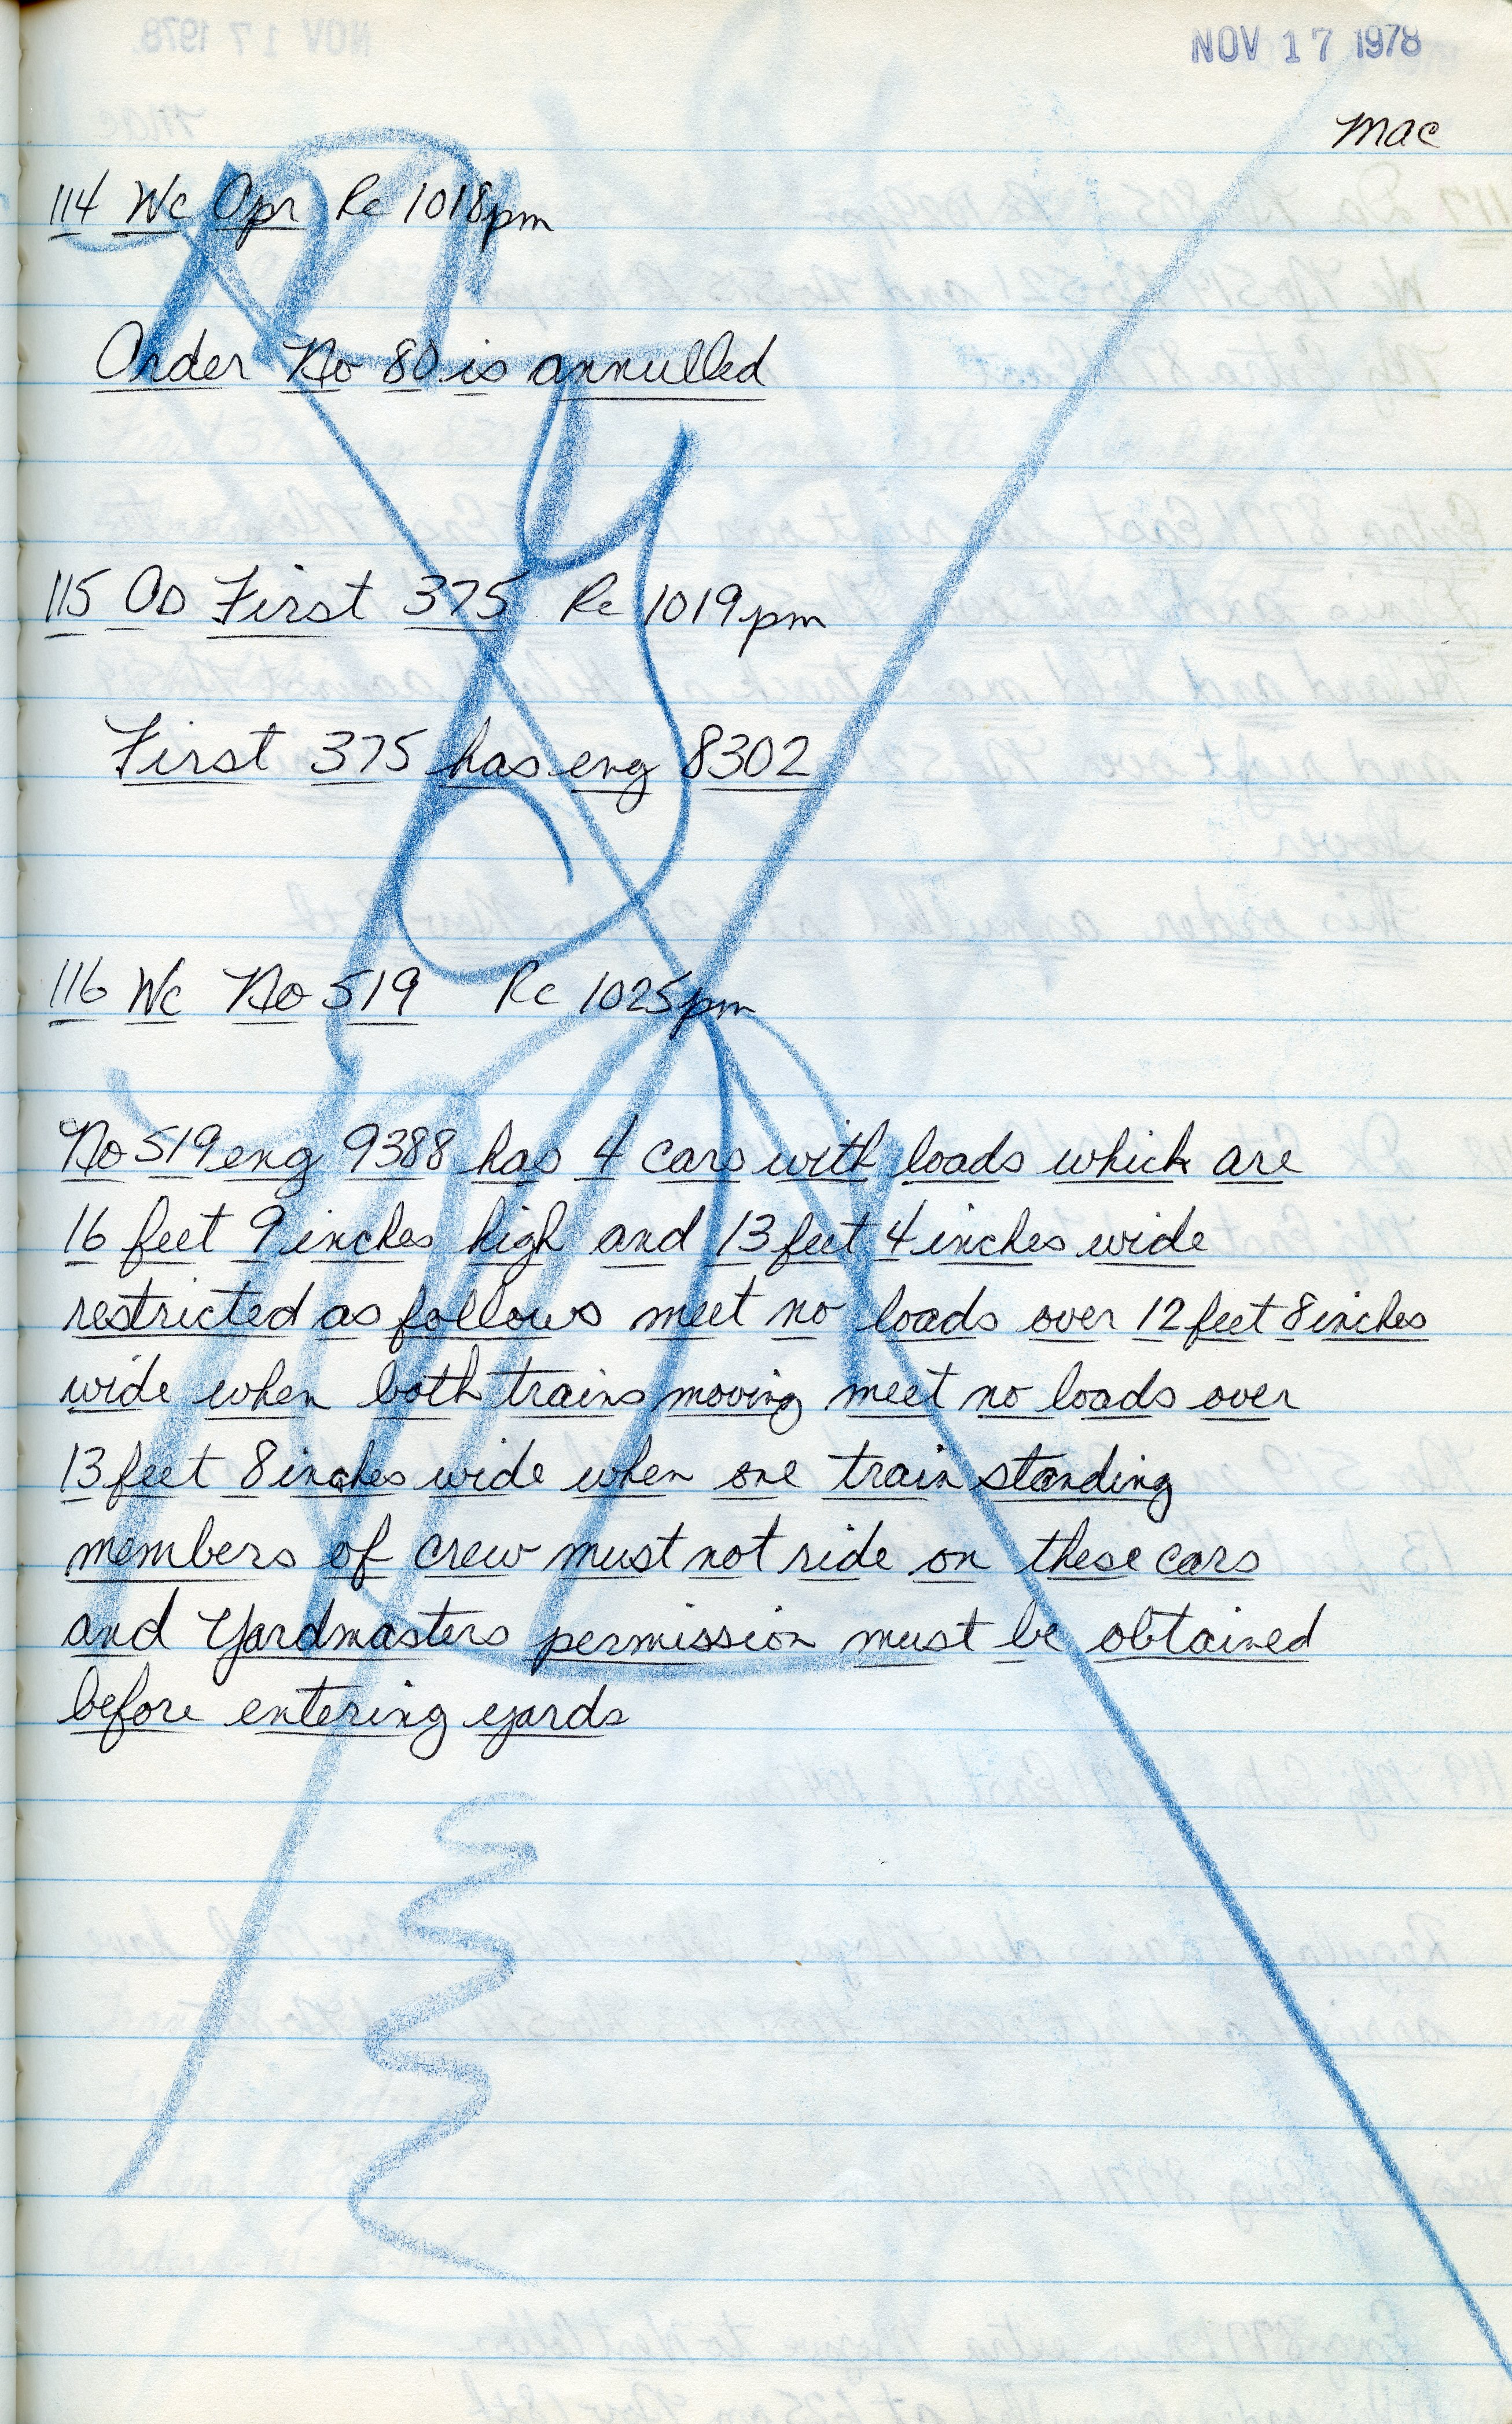 NOV 17 1978
mac
114 Wc Opr Rc 1018pm
Order No 80 is annulled
115 Os First 375 Rc 1019pm
First 375 has eng 8302
116 Wc No 519 Rc 1025pm
No 519 eng 9388 has 4 cars with loads which are
16 feet 9 inches high and 13 feet 4 inches wide
restricted as follows meet no loads over 12 feet 8 inches
wide when both trains moving meet no loads over
13 feet 8 inches wide when one train standing
members of crew must not ride on these cars
and Yardmasters permission must be obtained
before entering yards